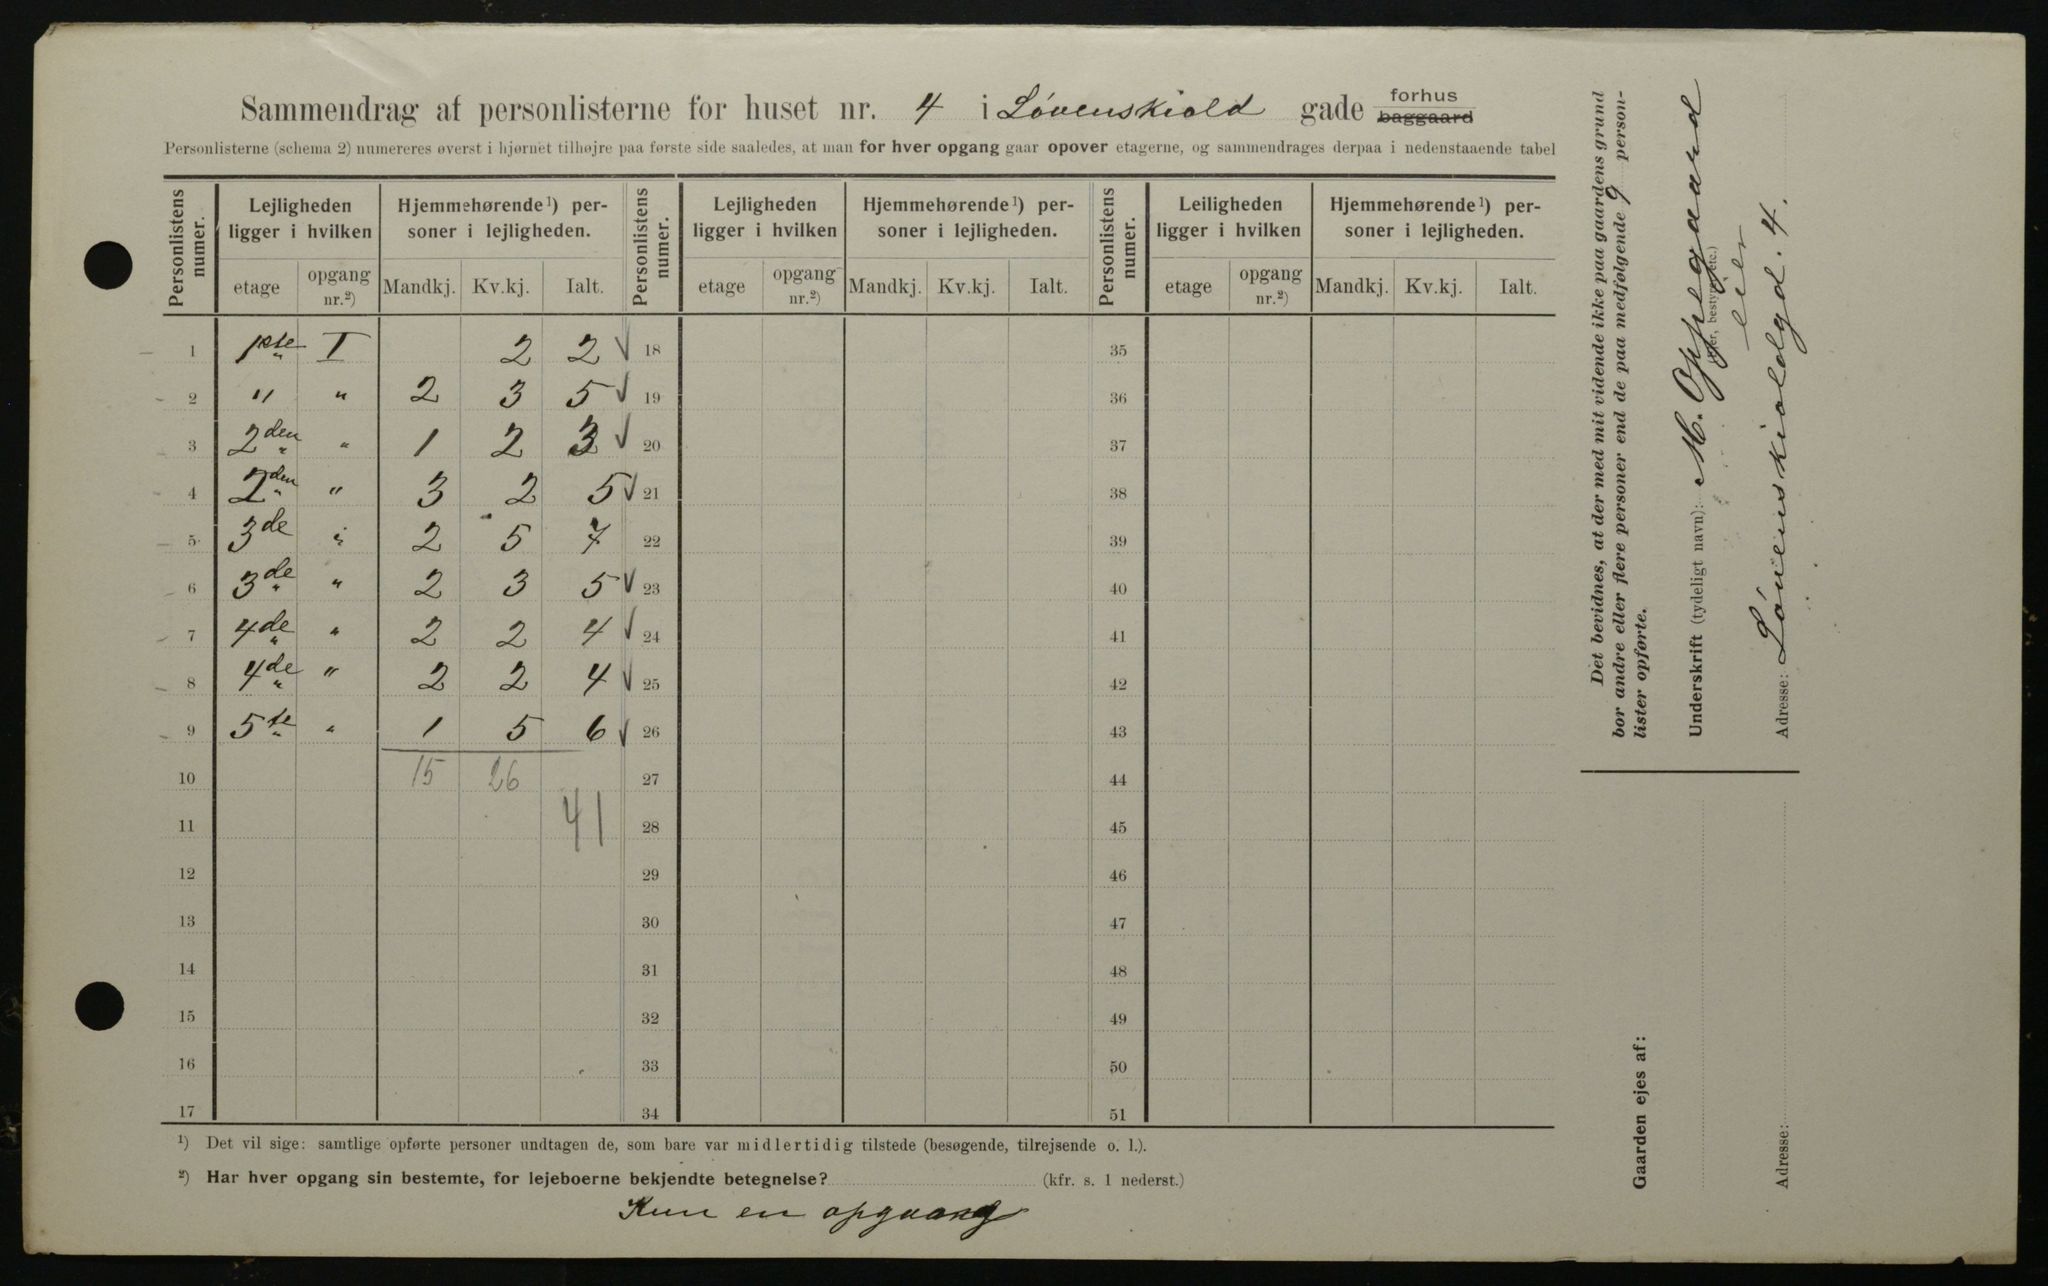 Sammendrag af personlisterne for huset nr. 4 i Løvenskiold gade forhus baggaard
Personlisterne (schema 2) numereres øverst i hjørnet tilhøjre paa første side saaledes, at man for hver opgang gaar opover etagerne, og sammendrages derpaa i nedenstaaende tabel
Personlistens numer. Lejligheden ligger i hvilken Hjemmehørende¹) personer i lejligheden. Personlistens numer. Lejligheden ligger i hvilken Hjemmehørende¹) personer i lejligheden. Personlistens numer. Leiligheden ligger i hvilken Hjemmehørende¹) personer i lejligheden.
etage opgang nr.²) Mandkj. Kv.kj. Ialt. etage opgang nr.²) Mandkj. Kv.kj. Ialt. etage opgang nr.²) Mandkj. Kv.kj. Ialt.
1 1ste I 2 2 ✓ 18 35
2 " " 2 3 5 ✓ 19 36
3 2den " 1 2 3 ✓ 20 37
4 2den " 3 2 5 ✓ 21 38
5 3de " 2 5 7 22 39
6 3de " 2 3 5 ✓ 23 40
7 4de " 2 2 4 ✓ 24 41
8 4de " 2 2 4 ✓ 25 42
9 5te " 1 5 6 ✓ 26 43
10 15 26 27 44
11 41 28 45
12 29 46
13 30 47
14 31 48
15 32 49
16 33 50
17 34 51
¹) Det vil sige: samtlige opførte personer undtagen de, som bare var midlertidig tilstede (besøgende, tilrejsende o. l.).
²) Har hver opgang sin bestemte, for lejeboerne bekjendte betegnelse? (kfr. s. 1 nederst.)
Kun en opgang
Det bevidnes, at der med mit vidende ikke paa gaardens grund
bor andre eller flere personer end de paa medfølgende 9 person-
lister opførte.
Underskrift (tydeligt navn): M. Oppegaard
(Ejer, bestyrer etc.)
eier
Adresse: Løvenskioldgd. 4.
Gaarden ejes af:
Adresse: